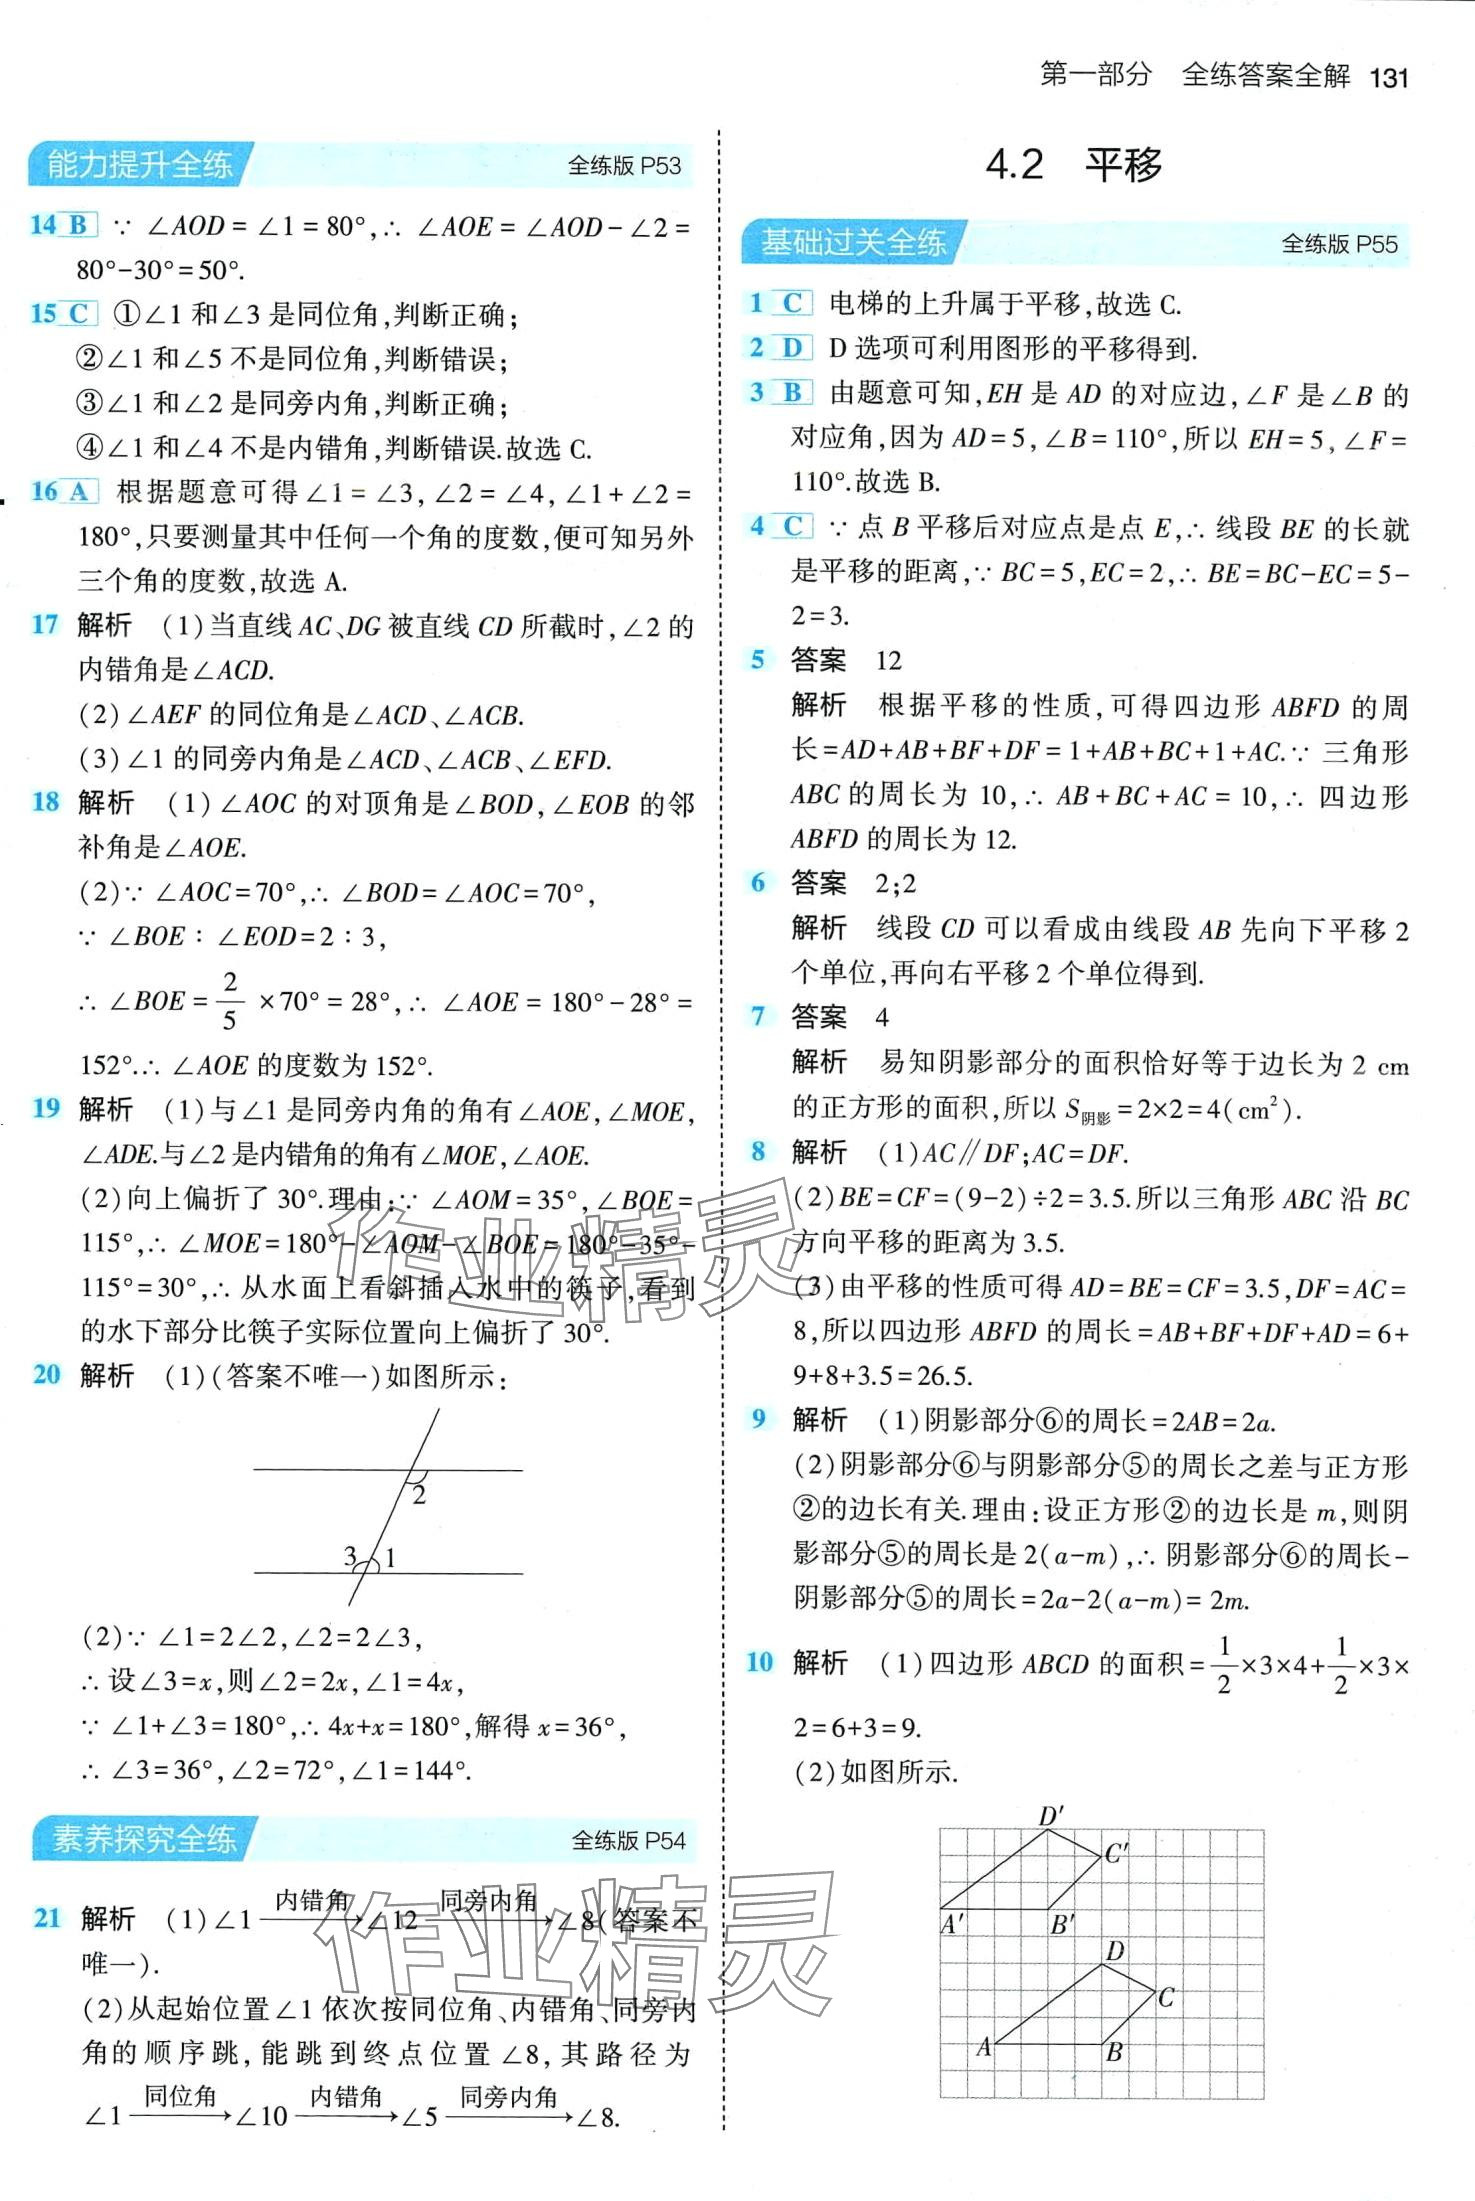 第一部分 全练答案全解 131
能力提升全练 全练版 P53
14 B ∵ ∠AOD = ∠1 = 80°,∴ ∠AOE = ∠AOD-∠2 =
80°-30°=50°.
15 C ①∠1 和∠3 是同位角,判断正确;
②∠1 和∠5 不是同位角,判断错误;
③∠1 和∠2 是同旁内角,判断正确;
④∠1 和∠4 不是内错角,判断错误.故选 C.
16 A 根据题意可得∠1 = ∠3, ∠2 = ∠4, ∠1+∠2 =
180°,只要测量其中任何一个角的度数,便可知另外
三个角的度数,故选 A.
17 解析 (1)当直线 AC、DG 被直线 CD 所截时,∠2 的
内错角是∠ACD.
(2)∠AEF 的同位角是∠ACD、∠ACB.
(3)∠1 的同旁内角是∠ACD、∠ACB、∠EFD.
18 解析 (1)∠AOC 的对顶角是∠BOD,∠EOB 的邻
补角是∠AOE.
(2)∵ ∠AOC=70°,∴ ∠BOD=∠AOC=70°,
∵ ∠BOE∶∠EOD=2∶3,
∴ ∠BOE = 2/5 ×70° = 28°,∴ ∠AOE = 180°-28° =
152°.∴ ∠AOE 的度数为 152°.
19 解析 (1)与∠1 是同旁内角的角有∠AOE,∠MOE,
∠ADE.与∠2 是内错角的角有∠MOE,∠AOE.
(2)向上偏折了 30°.理由:∵ ∠AOM=35°,∠BOE=
115°,∴ ∠MOE=180°-∠AOM-∠BOE=180°-35°-
115°=30°,∴ 从水面上看斜插入水中的筷子,看到
的水下部分比筷子实际位置向上偏折了 30°.
20 解析 (1)(答案不唯一)如图所示:
2
3 1
(2)∵ ∠1=2∠2,∠2=2∠3,
∴ 设∠3=x,则∠2=2x,∠1=4x,
∵ ∠1+∠3=180°,∴ 4x+x=180°,解得 x=36°,
∴ ∠3=36°,∠2=72°,∠1=144°.
素养探究全练 全练版 P54
21 解析 (1)∠1 —内错角→ ∠12 —同旁内角→ ∠8(答案不
唯一).
(2)从起始位置∠1 依次按同位角、内错角、同旁内
角的顺序跳,能跳到终点位置∠8,其路径为
∠1 —同位角→ ∠10 —内错角→ ∠5 —同旁内角→ ∠8.
4.2 平移
基础过关全练 全练版 P55
1 C 电梯的上升属于平移,故选 C.
2 D D 选项可利用图形的平移得到.
3 B 由题意可知,EH 是 AD 的对应边,∠F 是∠B 的
对应角,因为 AD=5,∠B=110°,所以 EH=5,∠F=
110°.故选 B.
4 C ∵ 点 B 平移后对应点是点 E,∴ 线段 BE 的长就
是平移的距离,∵ BC=5,EC=2,∴ BE=BC-EC=5-
2=3.
5 答案 12
解析 根据平移的性质,可得四边形 ABFD 的周
长=AD+AB+BF+DF=1+AB+BC+1+AC.∵ 三角形
ABC 的周长为 10,∴ AB+BC+AC = 10,∴ 四边形
ABFD 的周长为 12.
6 答案 2;2
解析 线段 CD 可以看成由线段 AB 先向下平移 2
个单位,再向右平移 2 个单位得到.
7 答案 4
解析 易知阴影部分的面积恰好等于边长为 2 cm
的正方形的面积,所以 S阴影=2×2=4(cm²).
8 解析 (1)AC∥DF;AC=DF.
(2)BE=CF=(9-2)÷2=3.5.所以三角形 ABC 沿 BC
方向平移的距离为 3.5.
(3)由平移的性质可得 AD=BE=CF=3.5,DF=AC=
8,所以四边形 ABFD 的周长=AB+BF+DF+AD=6+
9+8+3.5=26.5.
9 解析 (1)阴影部分⑥的周长=2AB=2a.
(2)阴影部分⑥与阴影部分⑤的周长之差与正方形
②的边长有关.理由:设正方形②的边长是 m,则阴
影部分⑤的周长是 2(a-m),∴ 阴影部分⑥的周长-
阴影部分⑤的周长=2a-2(a-m)=2m.
10 解析 (1)四边形 ABCD 的面积=1/2×3×4+1/2×3×
2=6+3=9.
(2)如图所示.
D′
C′
A′ B′
D
C
A B
作业精灵
作业精灵